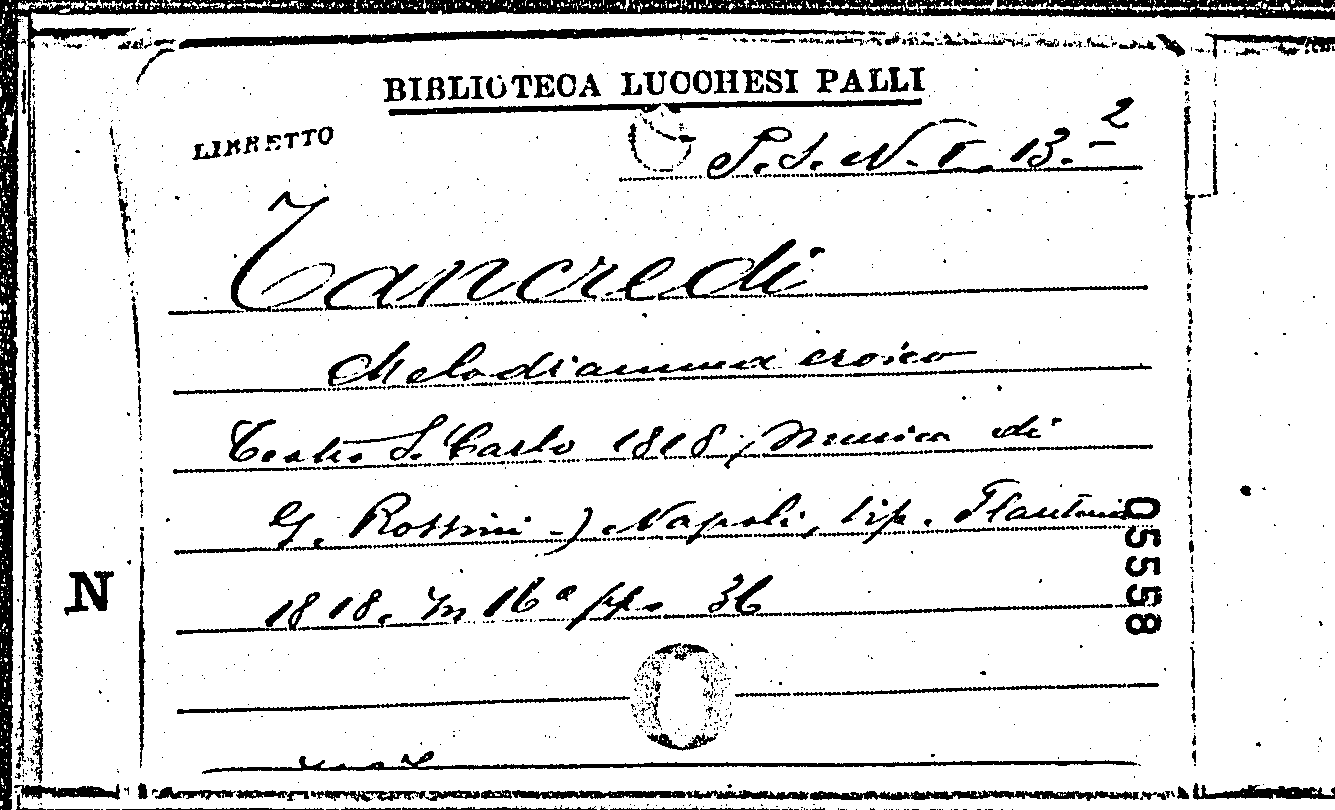 BIBLIOTECA LUCCHESI PALLI
LIBRETTO
S. N. V. 13. 2
Tancredi
Melodramma eroico
Teatro S. Carlo 1818, Musica di
G. Rossini -) Napoli, tip. Flautina
1818. In 16º pp. 36
N
05558